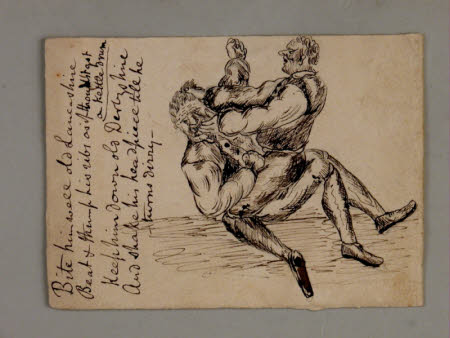 Bite him well old Lancashire
Beat & thump his ribs as if got
a Kettle drum
Keep him down old Derbyshire
And shake his headpiece till he
turns dizzy —